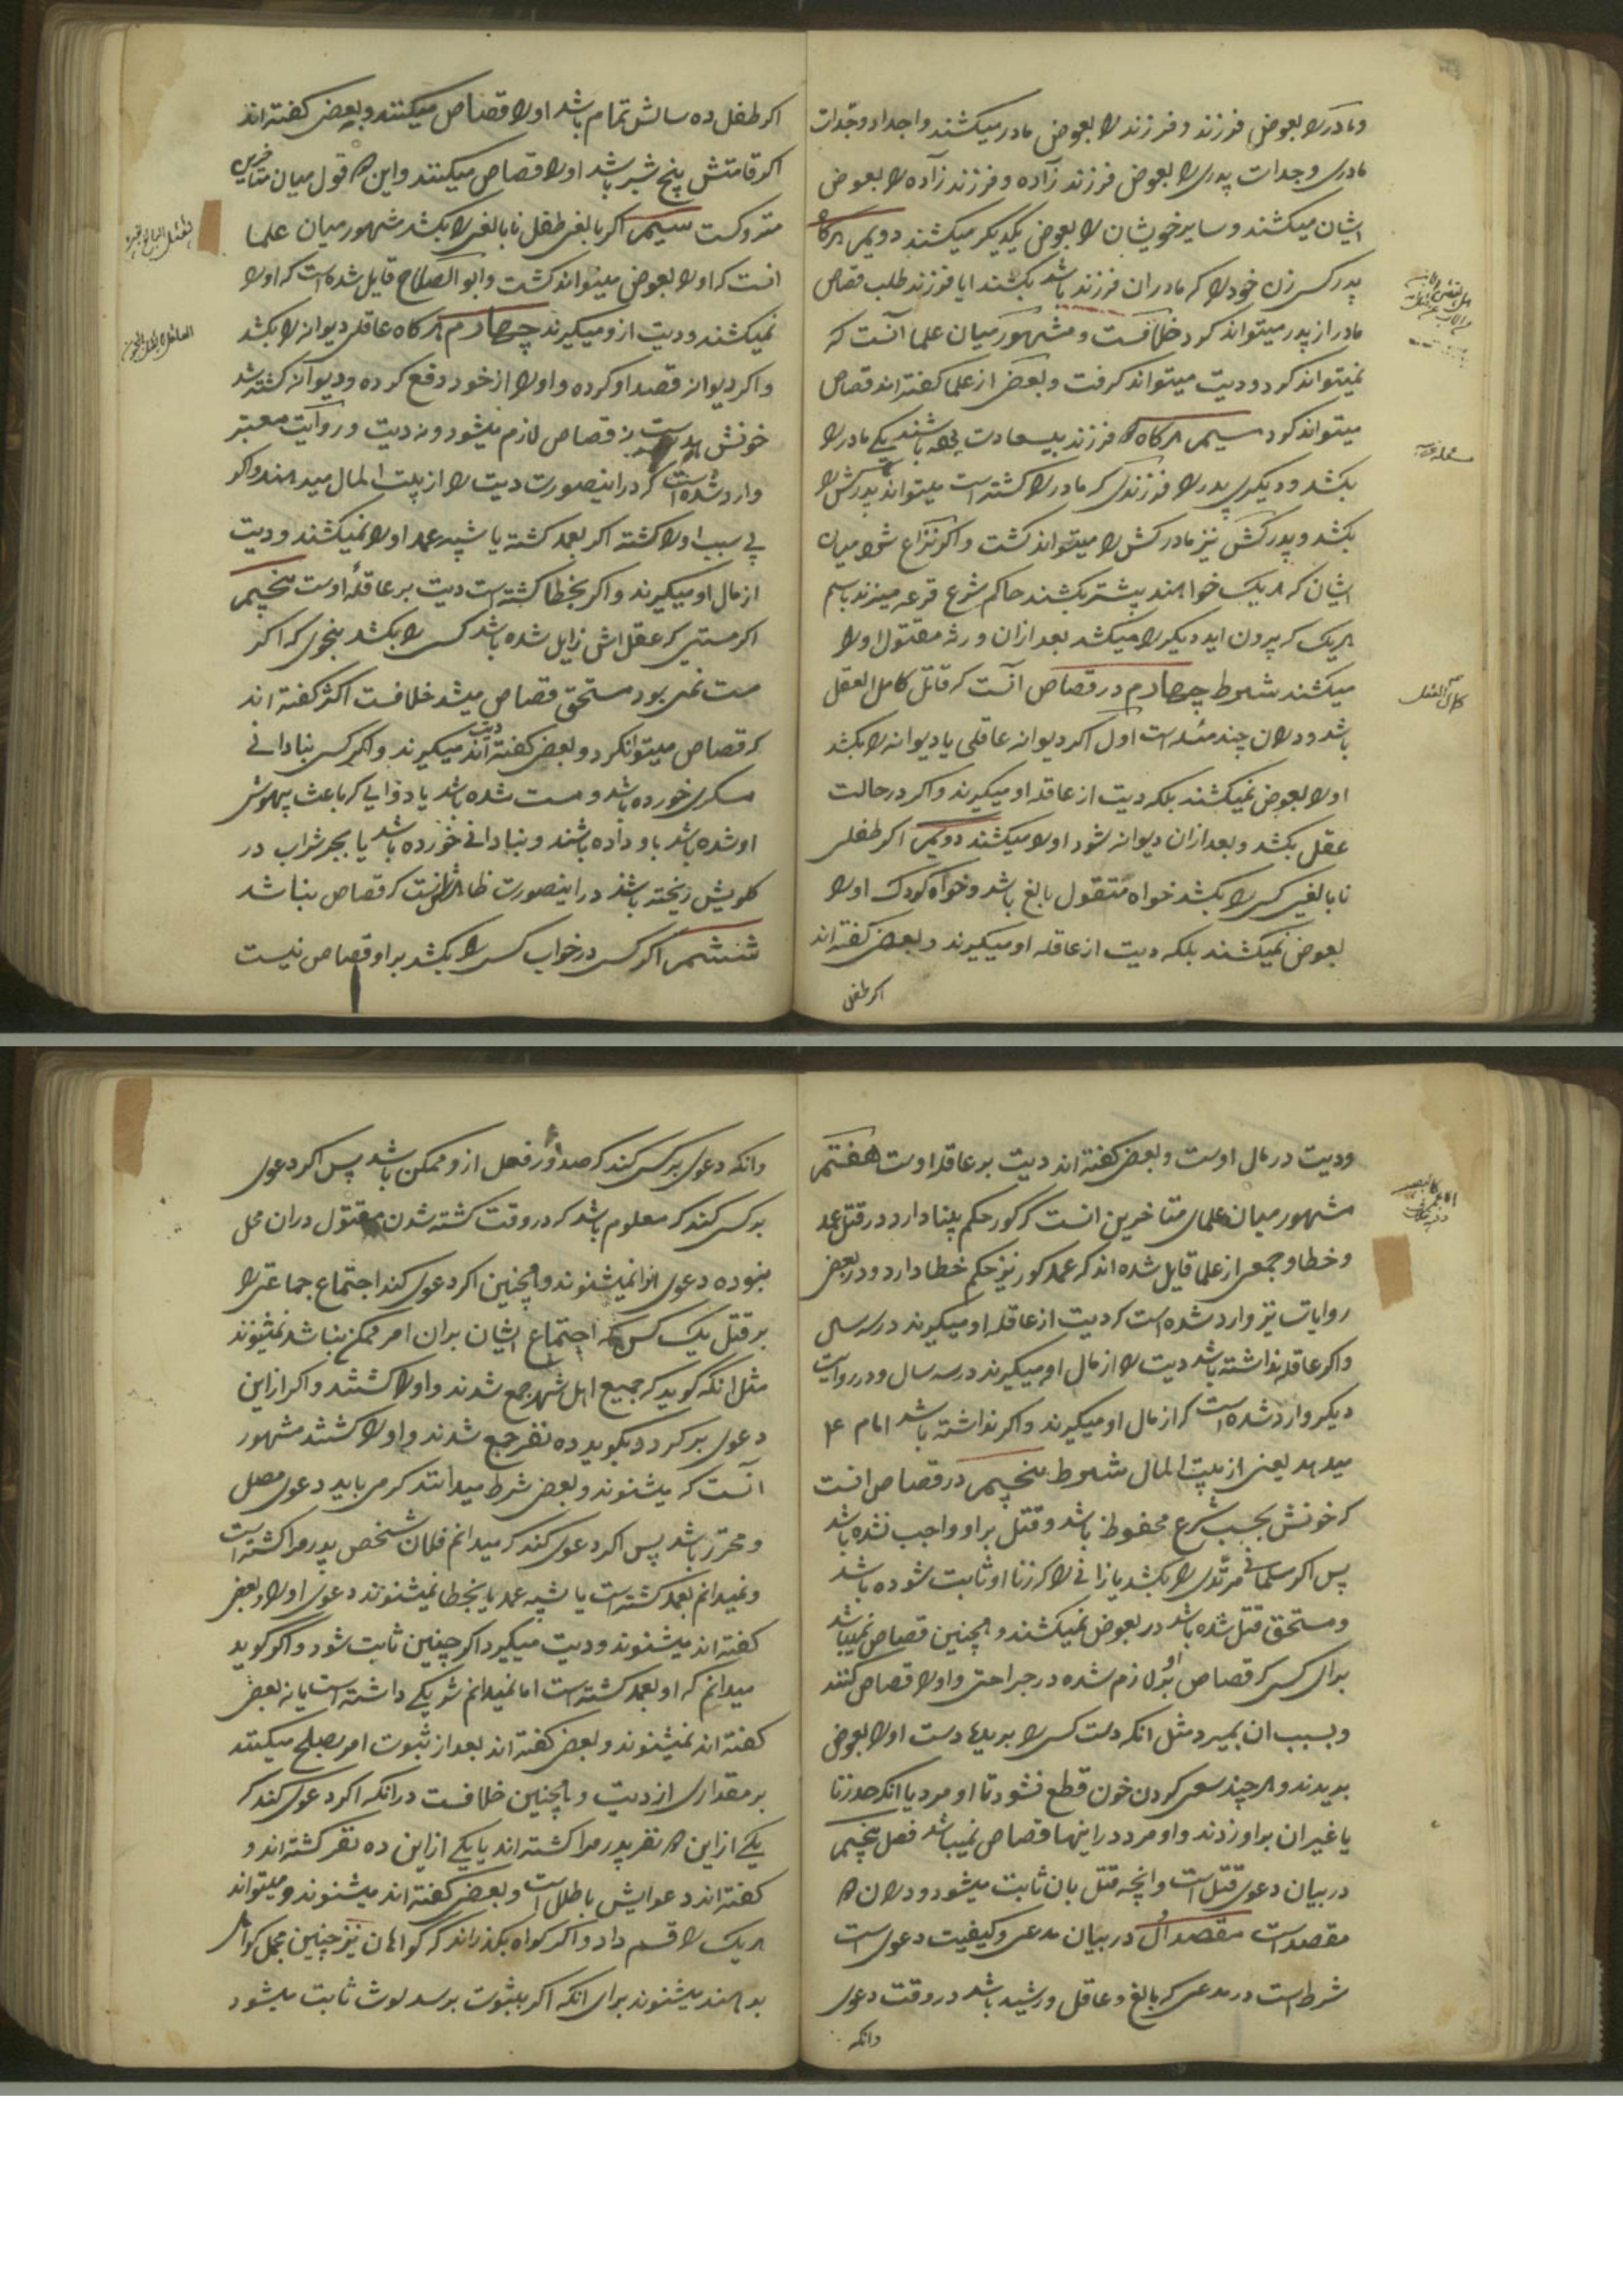 و مادر را بعوض فرزند و فرزند را بعوض مادر میکشند و اجداد و جدات
مادری و جدات پدری را بعوض فرزند زاده و فرزند زاده را بعوض
ایشان میکشند و سایر خویشان را بعوض یکدیکر میکشند دویم هرکاه
پدر کسی زن خود را که مادر ان فرزند باشد بکشند ایا فرزند طلب قصاص
مادر از پدر میتواند کرد خلافست و مشهور میان علما آنست که
نمیتواند کرد و دیت میتواند کرفت و بعضی از علما کفته اند قصاص
میتواند کرد سیم هرکاه دو فرزند بیسعادت باشند یکی مادر را
بکشد و دیکری پدر را فرزندی که مادر را کشته است میتواند پدرکش را
بکشد و پدرکش نیز مادرکش را میتواند کشت و اکر نزاع شود میان
ایشان که هر یک خواهند پیشتر بکشند حاکم شرع قرعه میزند باسم
هر یک که بیرون اید دیکر را میکشد بعد ازان ورثه مقتول او را
میکشند شرط چهارم در قصاص آنست که قاتل کامل العقل
باشد و دران چند مسئله است اول اکر دیوانه عاقلی یا دیوانه را بکشد
او را بعوض نمیکشند بلکه دیت از عاقله او میکیرند و اکر در حالت
عقل بکشد و بعد ازان دیوانه شود او را میکشند دویم اکر طفلی
نابالغی کسی را بکشد خواه مقتول بالغ باشد و خواه کودک او را
بعوض نمیکشند بلکه دیت از عاقله او میکیرند و بعضی کفته اند
اکر طفل
کامل العقل
اکر طفل ده سالش تمام باشد او را قصاص میکنند و بعضی کفته اند
اکر قامتش پنج شبر باشد او را قصاص میکنند و این دو قول میان متاخرین
متروکست سیم اکر بالغی طفل نابالغی را بکشد مشهور میان علما
انست که او را بعوض میتواند کشت و ابو الصلاح قایل شده است که او را
نمیکشند و دیت ازو میکیرند چهارم هرکاه عاقلی دیوانه را بکشد
و اکر دیوانه قصد او کرده و او را از خود دفع کرده و دیوانه کشته شد
خونش هدر است نه قصاص لازم میشود و نه دیت و روایت معتبر
وارد شده است که در اینصورت دیت را از بیت المال میدهند و اکر
بی سبب او را کشته اکر بعمد کشته یا شبیه عمد او را نمیکشند و دیت
از مال او میکیرند و اکر بخطا کشته است دیت بر عاقلهٔ اوست پنجم
اکر مستی که عقل اش زایل شده باشد کسی را بکشد بنحوی که اکر
مست نمی بود مستحق قصاص میشد خلافست اکثر کفته اند
که قصاص میتوانکرد و بعضی کفته اند دیت میکیرند و اکر کسی بنادانی
مسکری خورده باشد و مست شده باشد یا دوایی که باعث بیهوشی
او شده باشد باو داده باشند و بنادانی خورده باشد یا بجبر شراب در
کلویش ریخته باشند در اینصورت ظاهر انست که قصاص نباشد
ششم اکر کسی در خواب کسی را بکشد بر او قصاص نیست
و دیت در مال اوست و بعضی کفته اند دیت بر عاقله اوست هفتم
مشهور میان علمای متاخرین انست که کور حکم بینا دارد در قتل عمد
و خطا و جمعی از علما قایل شده اند که عمد کور نیز حکم خطا دارد و در بعضی
روایات نیز وارد شده است که دیت از عاقله او میکیرند در سه سال
و اکر عاقله نداشته باشد دیت را از مال او میکیرند در سه سال و در روایت
دیکر وارد شده است که از مال او میکیرند و اکر نداشته باشد امام ع
میدهد یعنی از بیت المال شرط پنجم در قصاص انست
که خونش بحسب شرع محفوظ باشد و قتل بر او واجب نشده باشد
پس اکر مسلمانی مرتدی را بکشد یا زانی را که زنا او ثابت شده باشد
و مستحق قتل شده باشد در بعوض نمیکشند و همچنین قصاص نمیباشد
برای کسی که قصاص بر او لازم شده در جراحتی و او را قصاص کنند
و بسبب ان بمیرد مثل انکه دست کسی را بریده دست او را بعوض
بریدند و هر چند سعی کردن خون قطع نشود تا او مرد یا انکه حد زنا
یا غیر ان بر او زدند و او مرد در اینها قصاص نمیباشد فصل پنجم
در بیان دعوی قتل است و انچه قتل بان ثابت میشود و دران دو
مقصد است مقصد اول در بیان مدعی و کیفیت دعوی است
شرط است در مدعی که بالغ و عاقل و رشید باشد در وقت دعوی
وانکه
وانکه دعوی بر کسی کند که صدور فعل ازو ممکن باشد پس اکر دعوی
بر کسی کند که معلوم باشد که در وقت کشته شدن مقتول دران محل
نبوده دعوی او را نمیشنوند و همچنین اکر دعوی کند اجتماع جماعتی را
بر قتل یک کس که اجتماع ایشان بران امر ممکن نباشد نمیشنوند
مثل انکه کوید که جمیع اهل شهر جمع شدند و او را کشتند و اکر از این
دعوی بر کردد بکوید ده نفر جمع شدند و او را کشتند مشهور
آنست که میشنوند و بعضی شرط میدانند که می باید دعوی مفصل
و محرز باشد پس اکر دعوی کند که میدانم فلان شخص پدر مرا کشته است
و نمیدانم بعمد کشته است یا شبیه عمد یا بخطا نمیشنوند دعوی او را و بعضی
کفته اند میشنوند و دیت میکیرد اکر چنین ثابت شود و اکر کوید
میدانم که او بعمد کشته است اما نمیدانم شریکی داشته است یا نه بعضی
کفته اند نمیشنوند و بعضی کفته اند بعد از ثبوت امر بصلح میکنند
بر مقداری از دیت و همچنین خلافست در انکه اکر دعوی کند که
یکی از این دو نفر پدر مرا کشته اند یا یکی از این ده نفر کشته اند و
کفته اند دعوایش باطل است و بعضی کفته اند میشنوند و میتواند
هر یک را قسم داد و اکر کواه بکذراند که کواهان نیز چنین مجمل کواهی
بدهند میشنوند برای انکه اکر بثبوت برسد لوث ثابت میشود